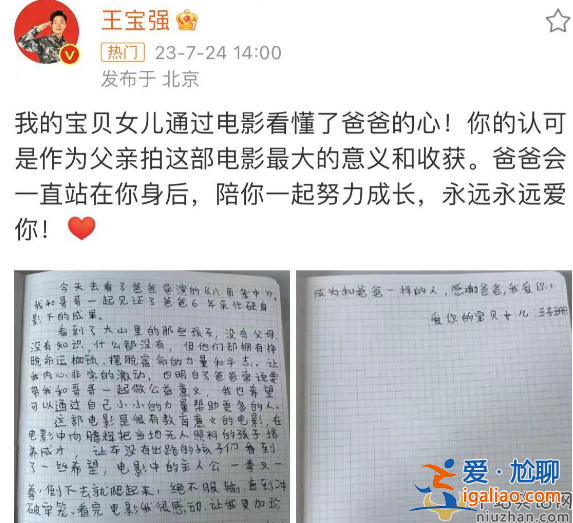 王宝强
热门 23-7-24 14:00
发布于 北京
我的宝贝女儿通过电影看懂了爸爸的心！你的认可
是作为父亲拍这部电影最大的意义和收获。爸爸会
一直站在你身后，陪你一起努力成长，永远永远爱
你！
今天去看了爸爸导演的《八角笼中》，
我和哥哥一起见证了爸爸6年来作硬身
影下的成果。
看到了大山里的那些孩子，没有父母，
没有知识，什么都没有，但他们却拥有挣
脱命运枷锁、摆脱宿命的力量和斗志，让
我内心非常的激动，也明白了爸爸常说要
带我和哥哥一起做公益意义，我也希望
可以通过自己小小的力量帮助更多的人。
这部电影是很有教育意义的电影，在
电影中向腾辉把当地无人照料的孩子培
养成才，让本没有出路的孩子们看到
了一丝希望，电影中的主人公一拳又一
拳，倒下去就爬起来，绝不服输直到冲
破牢笼。看完电影我很感动，让我更加
成为和爸爸一样的人，感谢爸爸，我爱你！
爱你的宝贝女儿
爱·尬聊
igaliao.com
niuzhan.com